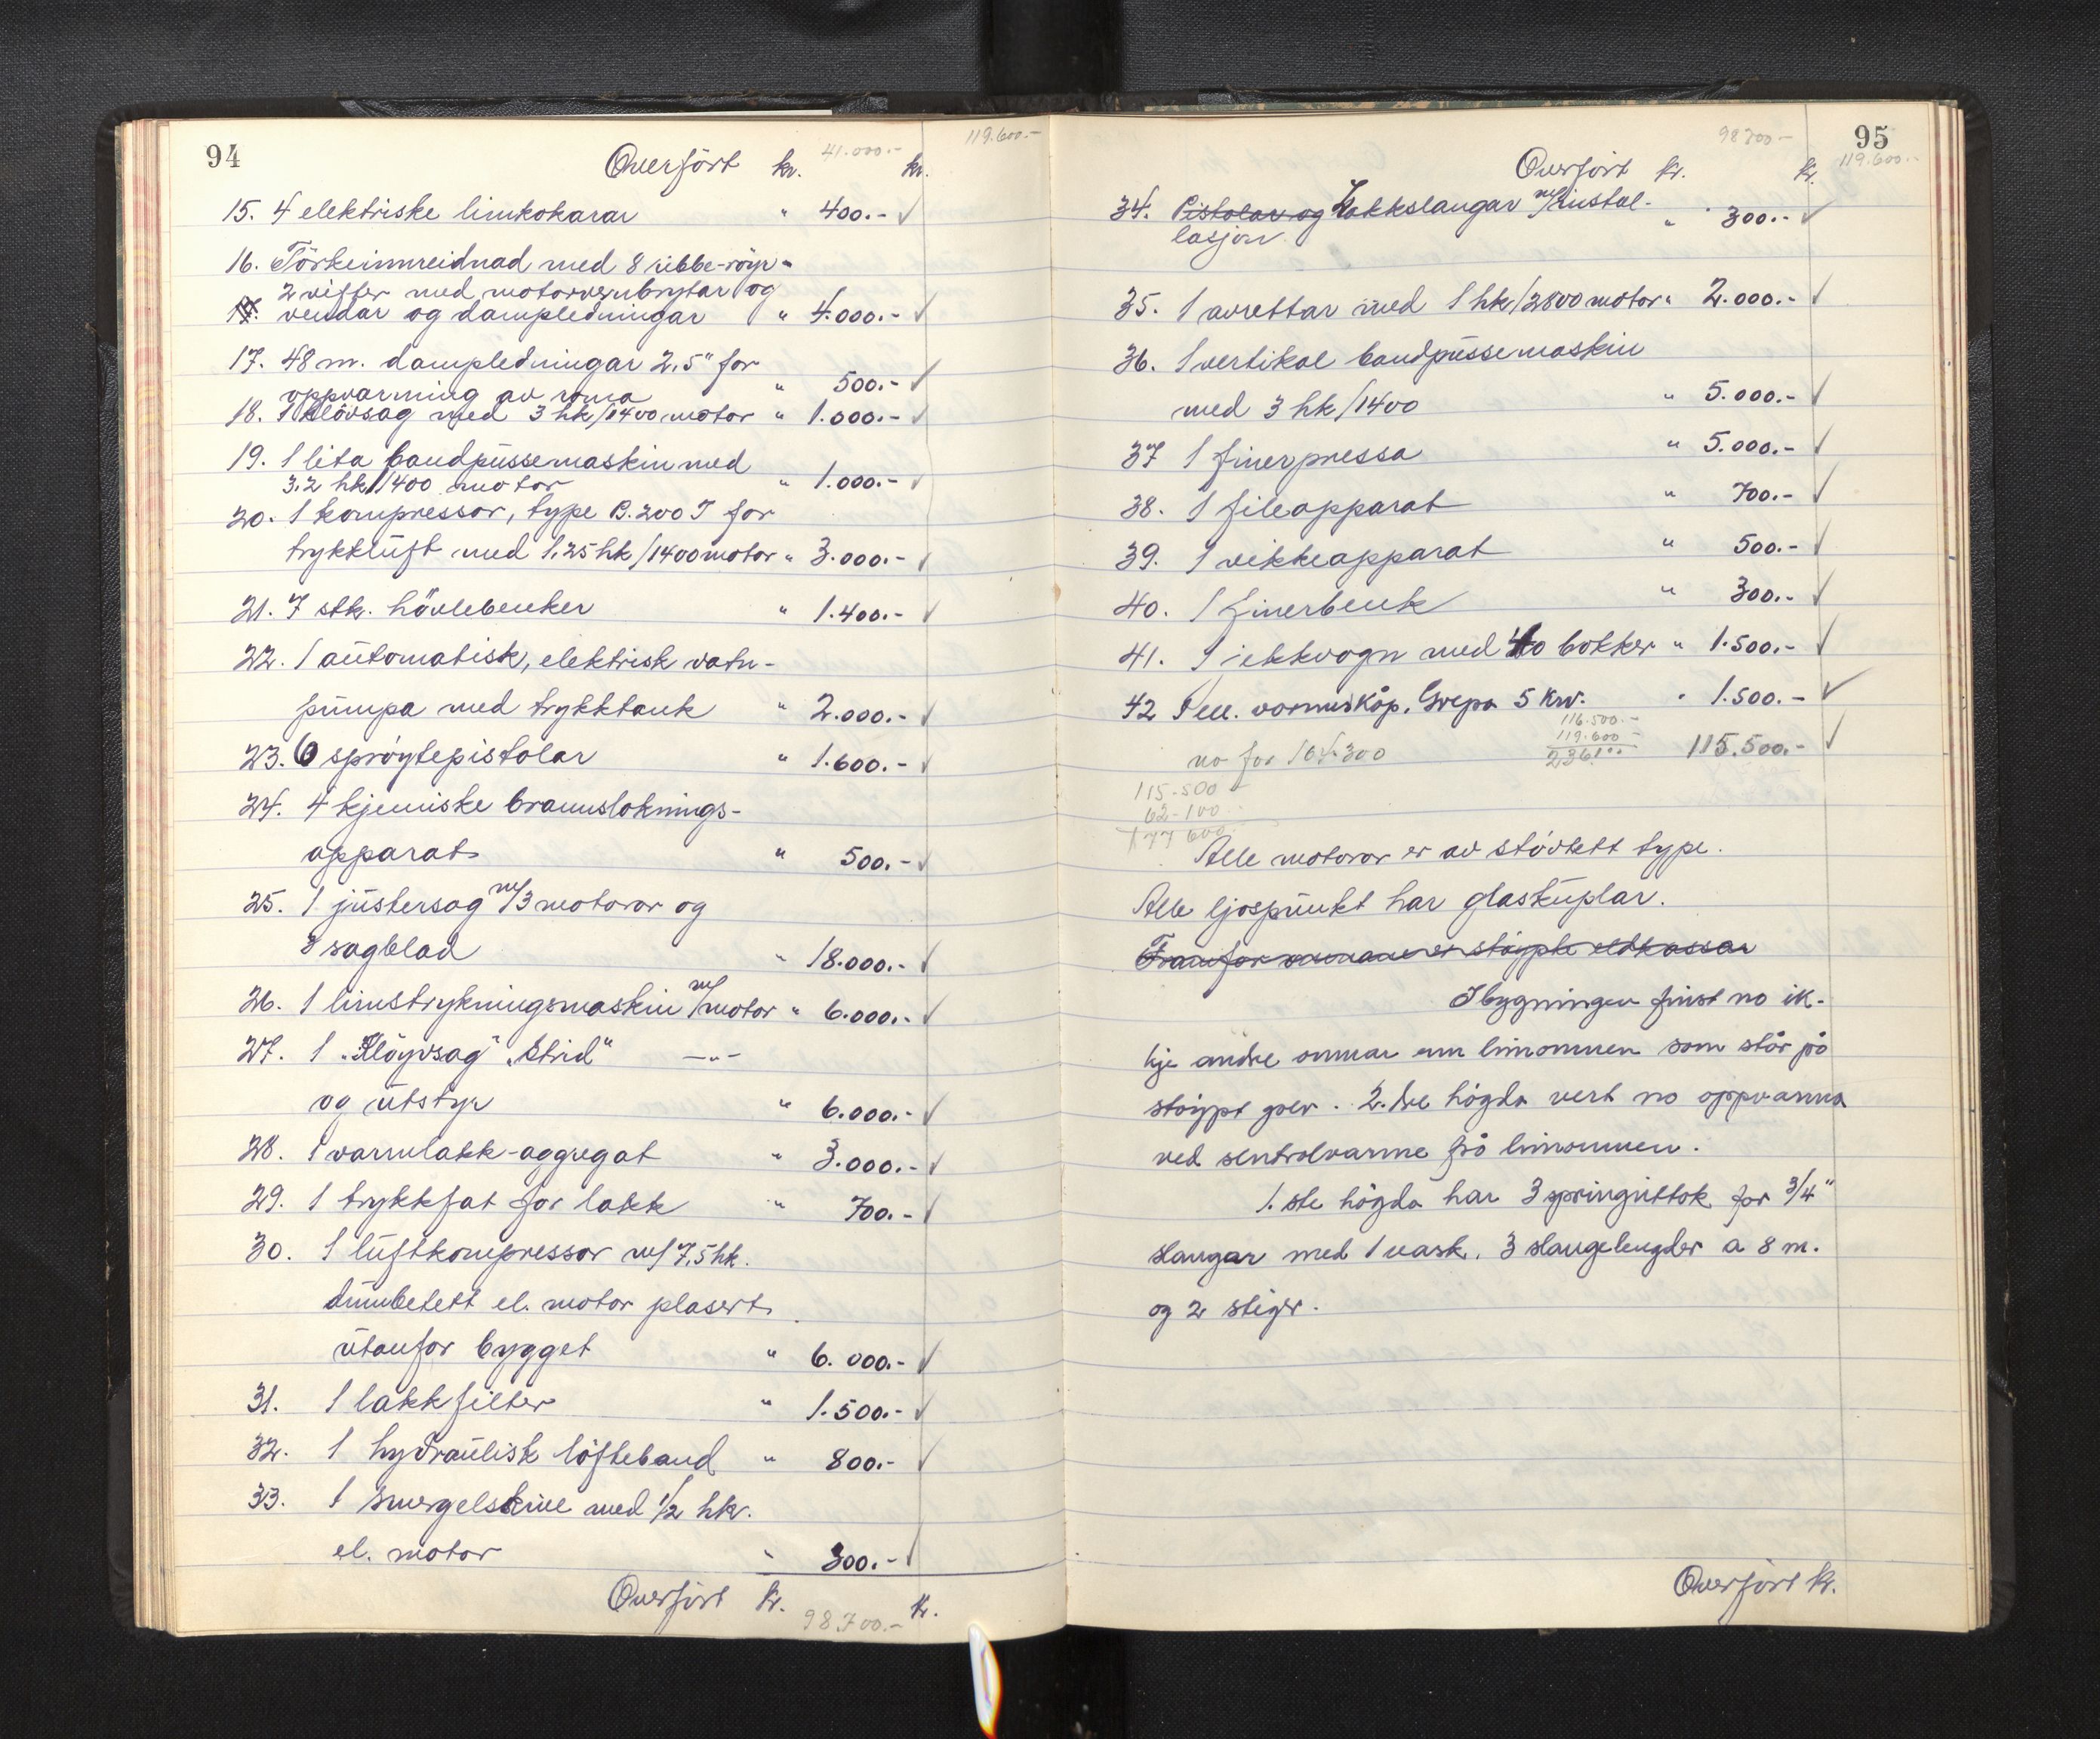 94
119.600.-
Overfört kr. 41.000.- kr.
15. 4 elektriske limkokarar " 400.-
16. Törkeinnreidnad med 8 ribbe-röyr-
2 vifter med motorvernbrytar og
vendar og dampledningar " 4.000.-
17. 48 m. dampledningar 2,5" for
oppvarming av roma " 500.-
18. 1 klövsag med 3 hk/1400 motor " 1.000.-
19. 1 lita bandpüssemaskin med
3.2 hk/1400 motor " 1.000.-
20. 1 kompressor, type B.200 T for
trykklüft med 1,25 hk/1400 motor " 3.000.-
21. 7 stk. hövlebenker " 1.400.-
22. 1 aütomatisk, elektrisk vatn-
pümpa med trykktank " 2.000.-
23. 6 spröytepistolar " 1.600.-
24. 4 kjemiske brannsloknings-
apparat " 500.-
25. 1 jüstersag m/3 motorar og
3 sagblad " 18.000.-
26. 1 limstrykningsmaskin m/motor " 6.000.-
27. 1 "Klöyvsag" "Strid" —"—
og ütstyr " 6.000.-
28. 1 varmlakk-aggregat " 3.000.-
29. 1 trykkfat for lakk " 700.-
30. 1 lüftkompressor m/7,5 hk.
dimbetett el. motor plasert
ütanfor bygget " 6.000.-
31. 1 lakkfilter " 1.500.-
32. 1 hydraülisk löftebord " 800.-
33. 1 smergelskive med 1/2 hk.
el. motor " 300.-
Overfört kr. 98.700.- kr.
95
98700.-
119.600.-
Overfört kr. kr.
34. Pistolar og Lakkslangar m/instal-
lasjon " 300.-
35. 1 avrettar med 1 hk/2800 motor " 2.000.-
36. 1 vertikal bandpüssemaskin
med 3 hk/1400 " 5.000.-
37 1 finerpressa " 5.000.-
38. 1 fileapparat " 700.-
39. 1 vikkeapparat " 500.-
40. 1 finerbenk " 300.-
41. 1 jekkvogn med 40 bokker " 1.500.-
42 1 ell. varmeskåp, Grepa 5 Kw. " 1.500.-
116.500.-
119.600.-
no for 164.300 236.100 115.500.-
115-500
62-100
177600
Alle motorar er av stövtett type.
Alle ljospünkt har glasküplar.
Framfor omnane er stöypte eldkassar
I bygningen finst no ik-
kje andre omnar enn limomnen som står på
stöypt golv. 2.dre högda vert no oppvarma
ved sentralvarme frå limomnen.
1.ste högda har 3 springuttak for 3/4"
slangar med 1 vask, 3 slangelengder a 8 m.
og 2 stiger.
Overfört kr.